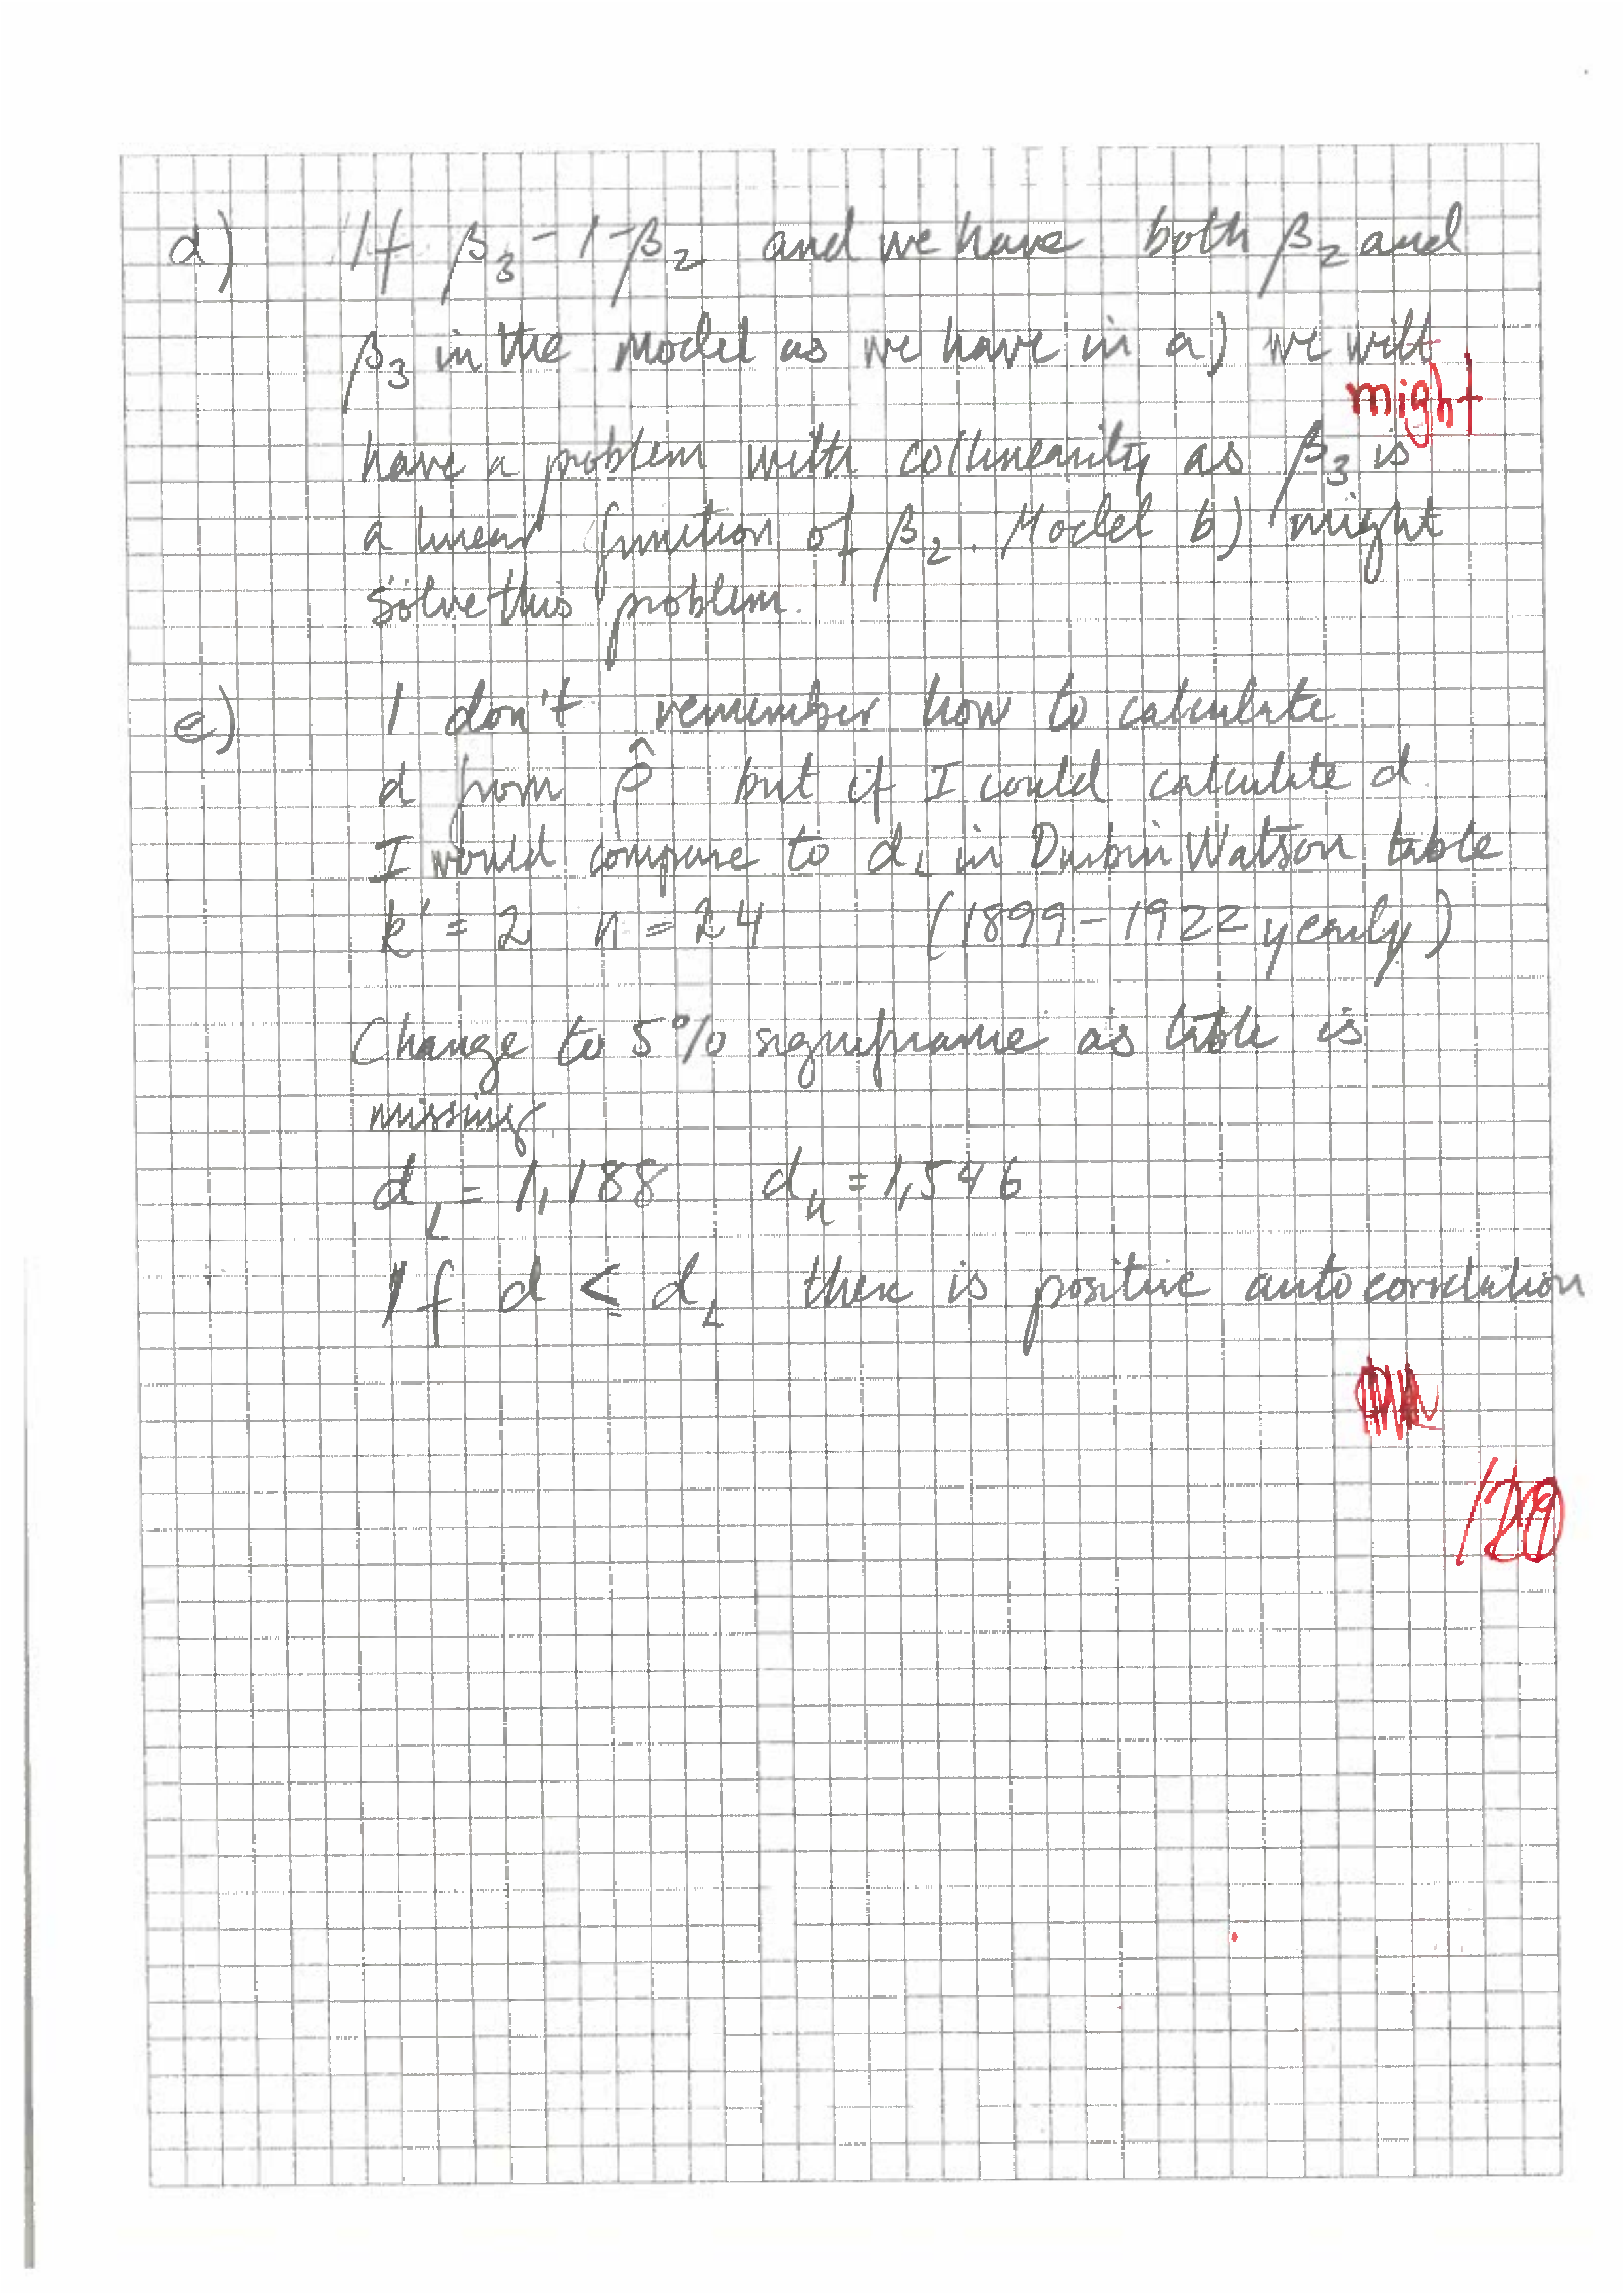 d) If β₃ = 1-β₂ and we have both β₂ and
β₃ in the model as we have in a) we will
might
have a problem with collinearity as β₃ is
a linear function of β₂. Model b) might
solve this problem.
e) I don't remember how to calculate
d from ρ̂ but if I could calculate d
I would compare to d_L in Durbin Watson table
k' = 2 n = 24 (1899-1922 yearly)
Change to 5% significance as table is
missing.
d_L = 1,188 d_u = 1,546
If d < d_L there is positive autocorrelation